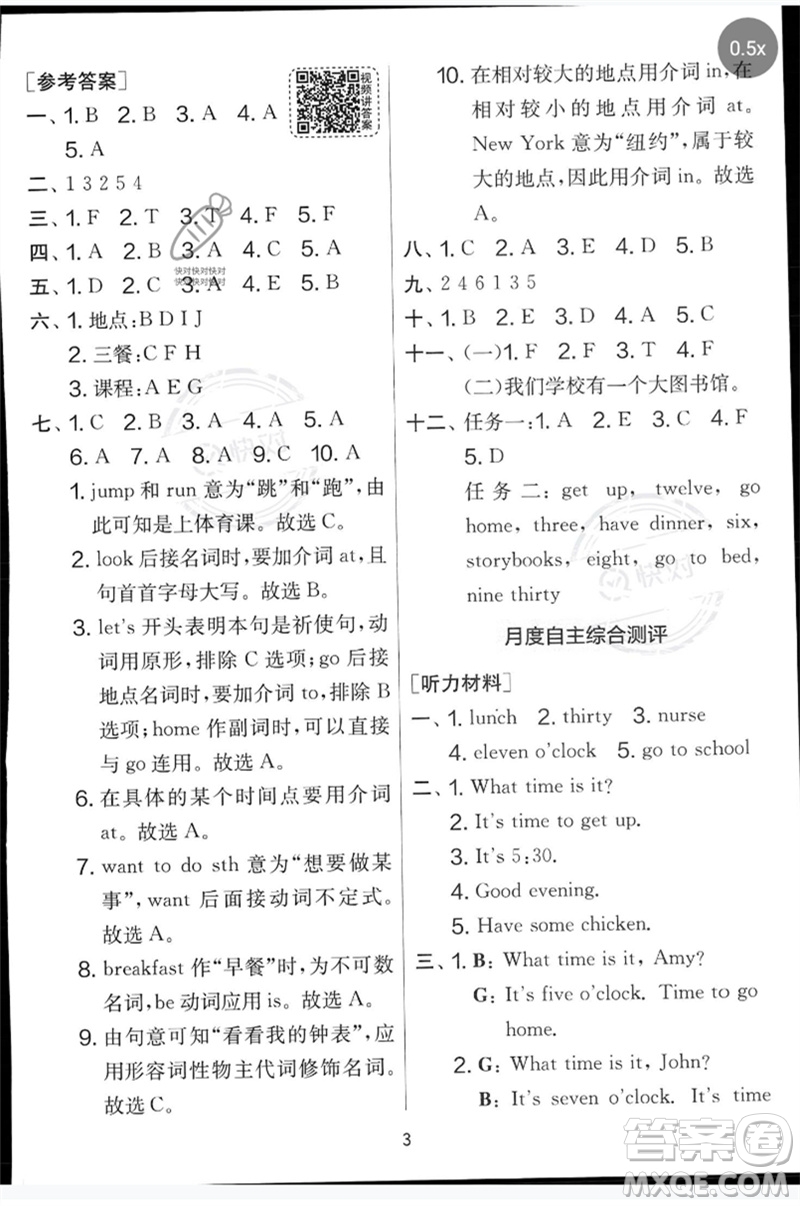 0.5x
[参考答案]
视频讲答案
一、1. B 2. B 3. A 4. A
5. A
二、1 3 2 5 4
三、1. F 2. T 3. T 4. F 5. F
四、1. A 2. B 3. A 4. C 5. A
快对快对快对
快对快对快对
五、1. D 2. C 3. A 4. E 5. B
六、1. 地点:B D I J
2. 三餐:C F H
3. 课程:A E G
七、1. C 2. B 3. A 4. A 5. A
6. A 7. A 8. A 9. C 10. A
1. jump 和 run 意为“跳”和“跑”,由
此可知是上体育课。故选 C。
2. look 后接名词时,要加介词 at,且
句首首字母大写。故选 B。
3. let's 开头表明本句是祈使句,动
词用原形,排除 C 选项;go 后接
地点名词时,要加介词 to,排除 B
选项;home 作副词时,可以直接
与 go 连用。故选 A。
6. 在具体的某个时间点要用介词
at。故选 A。
7. want to do sth 意为“想要做某
事”,want 后面接动词不定式。
故选 A。
8. breakfast 作“早餐”时,为不可数
名词,be 动词应用 is。故选 A。
9. 由句意可知“看看我的钟表”,应
用形容词性物主代词修饰名词。
故选 C。
10. 在相对较大的地点用介词 in,在
相对较小的地点用介词 at。
New York 意为“纽约”,属于较
大的地点,因此用介词 in。故选
A。
八、1. C 2. A 3. E 4. D 5. B
九、2 4 6 1 3 5
十、1. C 2. B 3. B 4. A 5. A
十一、(一)1. F 2. F 3. T 4. F
(二)我们学校有一个大图书馆。
十二、任务一:1. A 2. E 3. C 4. F
5. D
任务二:get up, twelve, go
home, three, have dinner, six,
storybooks, eight, go to bed,
nine thirty
快对
月度自主综合测评
[听力材料]
一、1. lunch 2. thirty 3. nurse
4. eleven o'clock 5. go to school
二、1. What time is it?
2. It's time to get up.
3. It's 5:30.
4. Good evening.
5. Have some chicken.
三、1. B: What time is it, Amy?
G: It's five o'clock. Time to go
home.
2. G: What time is it, John?
B: It's seven o'clock. It's time
3
答案卷
MXQE.COM